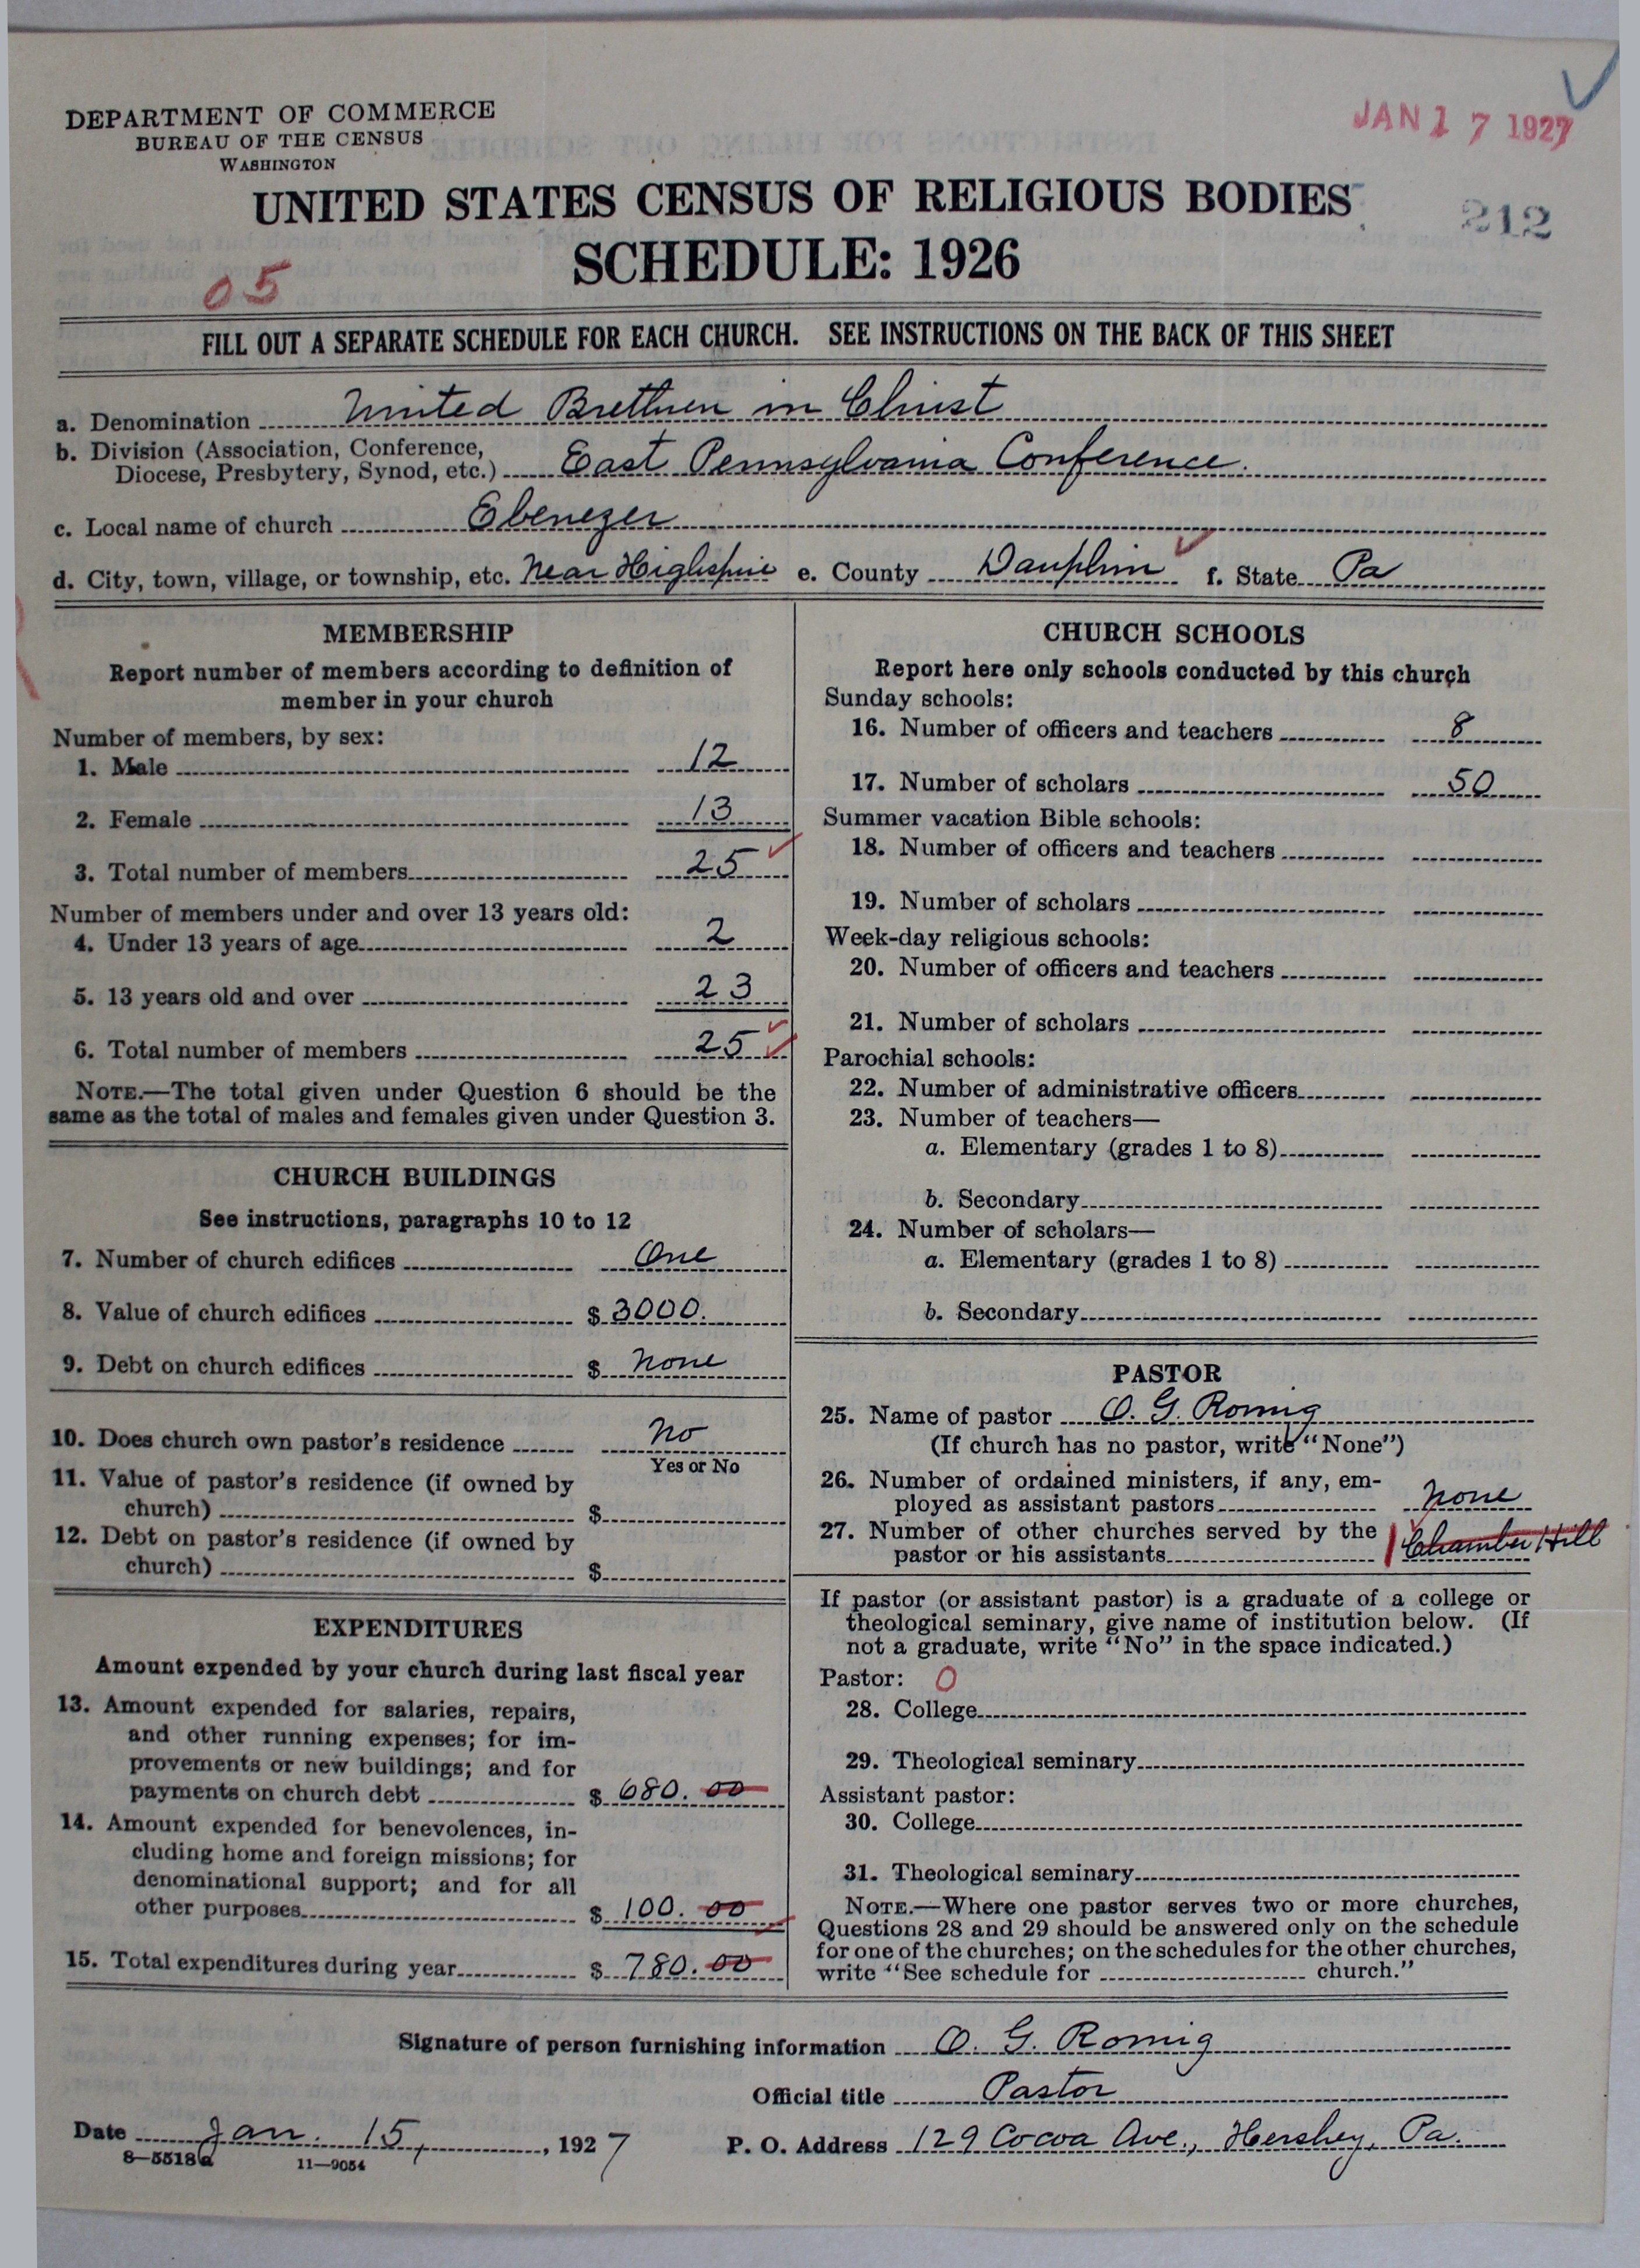 DEPARTMENT OF COMMERCE
BUREAU OF THE CENSUS
WASHINGTON
JAN 17 1927
UNITED STATES CENSUS OF RELIGIOUS BODIES
212
SCHEDULE: 1926
05
FILL OUT A SEPARATE SCHEDULE FOR EACH CHURCH. SEE INSTRUCTIONS ON THE BACK OF THIS SHEET
a. Denomination United Brethren in Christ
b. Division (Association, Conference,
Diocese, Presbytery, Synod, etc.) East Pennsylvania Conference.
c. Local name of church Ebenezer
d. City, town, village, or township, etc. Near Highspire e. County Dauphin f. State Pa
MEMBERSHIP
Report number of members according to definition of
member in your church
Number of members, by sex:
1. Male 12
2. Female 13
3. Total number of members 25
Number of members under and over 13 years old:
4. Under 13 years of age 2
5. 13 years old and over 23
6. Total number of members 25
NOTE.—The total given under Question 6 should be the
same as the total of males and females given under Question 3.
CHURCH BUILDINGS
See instructions, paragraphs 10 to 12
7. Number of church edifices One
8. Value of church edifices $ 3000.
9. Debt on church edifices $ none
10. Does church own pastor's residence No
Yes or No
11. Value of pastor's residence (if owned by
church) $
12. Debt on pastor's residence (if owned by
church) $
EXPENDITURES
Amount expended by your church during last fiscal year
13. Amount expended for salaries, repairs,
and other running expenses; for im-
provements or new buildings; and for
payments on church debt $ 680.00
14. Amount expended for benevolences, in-
cluding home and foreign missions; for
denominational support; and for all
other purposes $ 100.00
15. Total expenditures during year $ 780.00
CHURCH SCHOOLS
Report here only schools conducted by this church
Sunday schools:
16. Number of officers and teachers 8
17. Number of scholars 50
Summer vacation Bible schools:
18. Number of officers and teachers
19. Number of scholars
Week-day religious schools:
20. Number of officers and teachers
21. Number of scholars
Parochial schools:
22. Number of administrative officers
23. Number of teachers—
a. Elementary (grades 1 to 8)
b. Secondary
24. Number of scholars—
a. Elementary (grades 1 to 8)
b. Secondary
PASTOR
25. Name of pastor O. G. Romig
(If church has no pastor, write "None")
26. Number of ordained ministers, if any, em-
ployed as assistant pastors none
27. Number of other churches served by the
pastor or his assistants 1 Chamber Hill
If pastor (or assistant pastor) is a graduate of a college or
theological seminary, give name of institution below. (If
not a graduate, write "No" in the space indicated.)
Pastor: 0
28. College
29. Theological seminary
Assistant pastor:
30. College
31. Theological seminary
NOTE.—Where one pastor serves two or more churches,
Questions 28 and 29 should be answered only on the schedule
for one of the churches; on the schedules for the other churches,
write "See schedule for church."
Signature of person furnishing information O. G. Romig
Official title Pastor
Date Jan. 15, 1927 P. O. Address 129 Cocoa Ave., Hershey, Pa.
8—5518a 11—9054